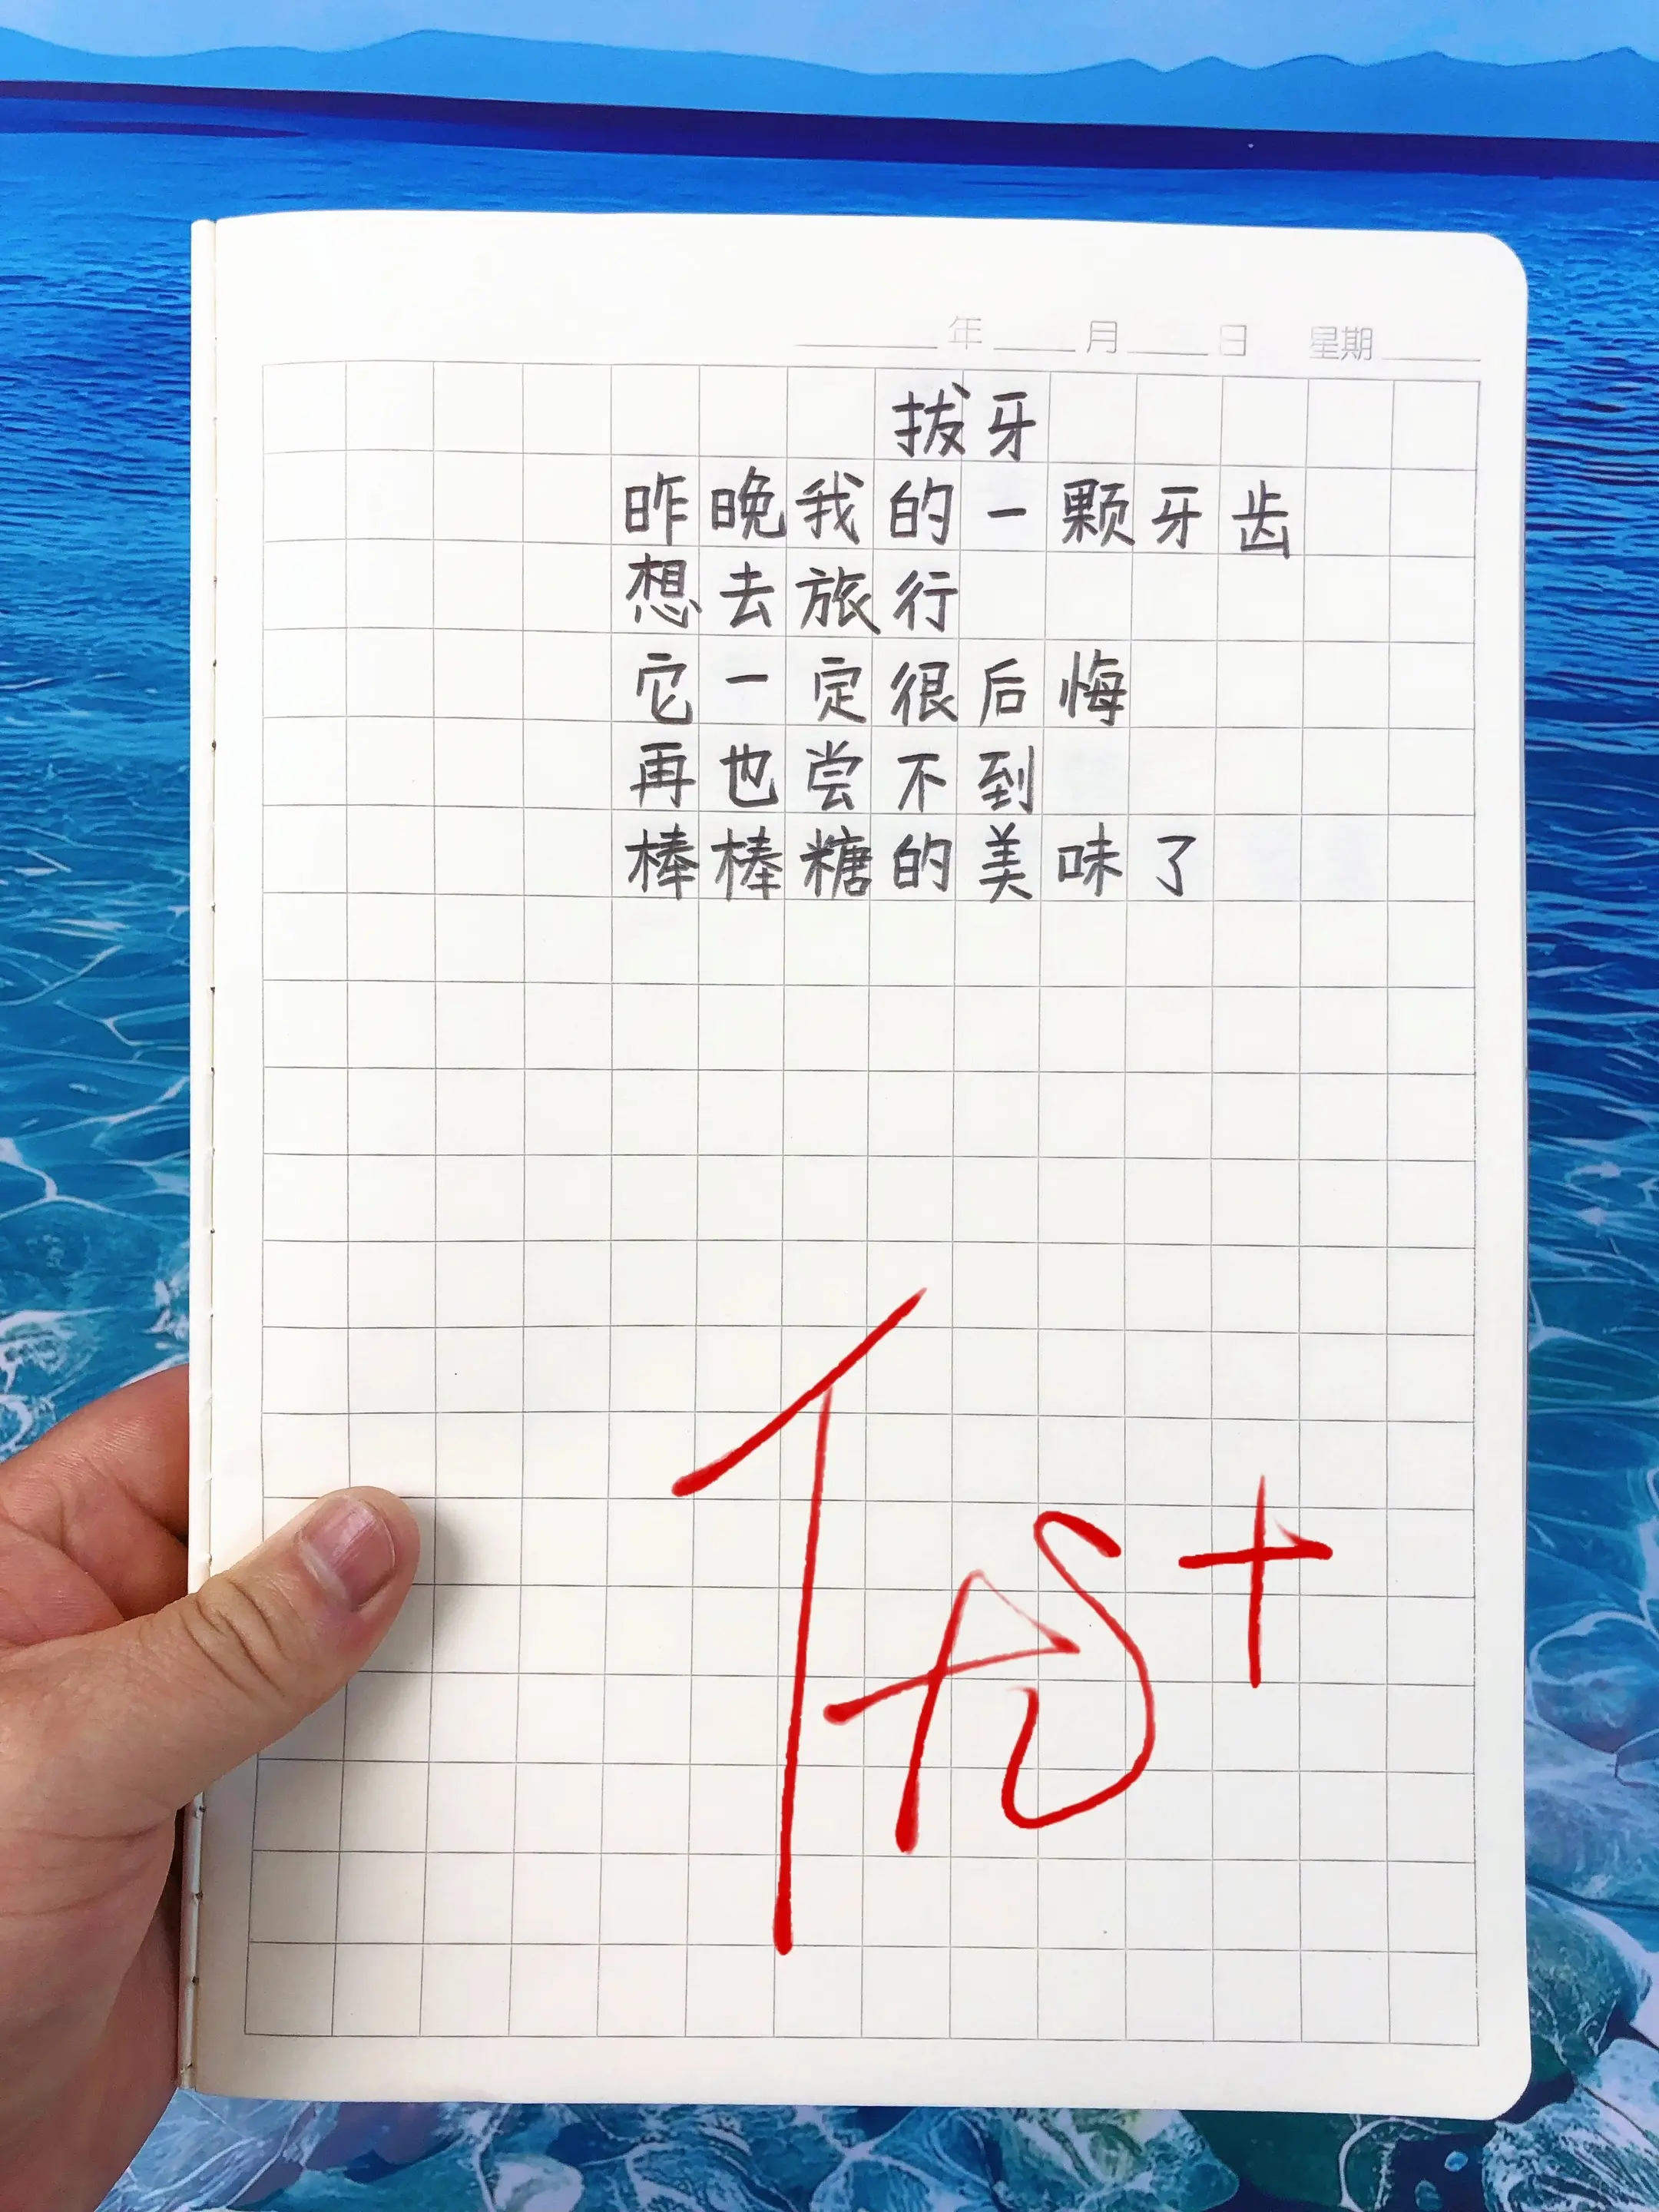 年 月 日 星期
拔牙
昨晚我的一颗牙齿
想去旅行
它一定很后悔
再也尝不到
棒棒糖的美味了